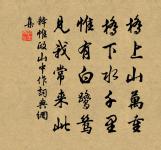 橋上山萬重
橋下水千里
惟有白鷺鷥
見我常來此
釋惟政山中作詞典網
集